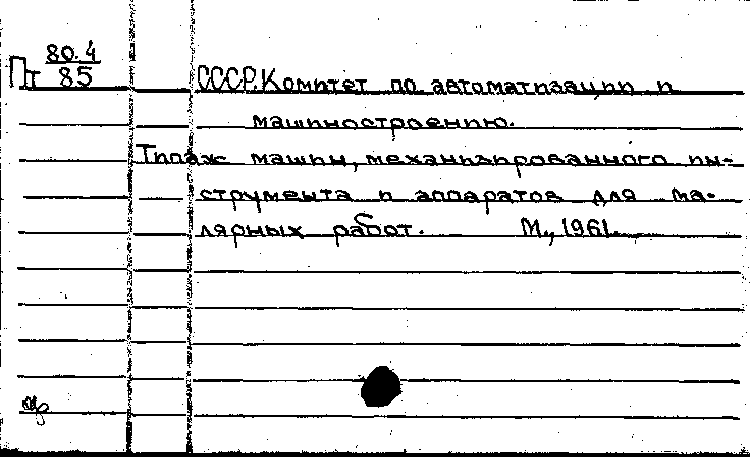 Пт 80.4
85
СССР. Комитет по автоматизации и
машиностроению.
Типаж машин, механизированного ин-
струмента и аппаратов для ма-
лярных работ. М., 1961.